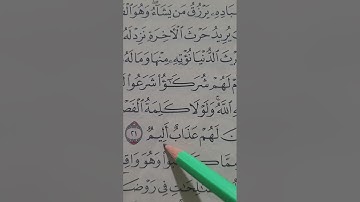 بَادِهِۦ يَرْزُقُ مَن يَشَآءُ ۖ وَهُوَ
يُرِيدُ حَرْثَ ٱلْءَاخِرَةِ نَزِدْ لَهُۥ
ثَ ٱلدُّنْيَا نُؤْتِهِۦ مِنْهَا وَمَا لَهُۥ
لَهُمْ شُرَكَٰٓؤُا۟ شَرَعُوا۟
ٱللَّهُ ۚ وَلَوْلَا كَلِمَةُ ٱلْفَصْ
نَ لَهُمْ عَذَابٌ أَلِيمٌ ٢١
وَهُوَ وَاقِ
فِى رَوْضَا